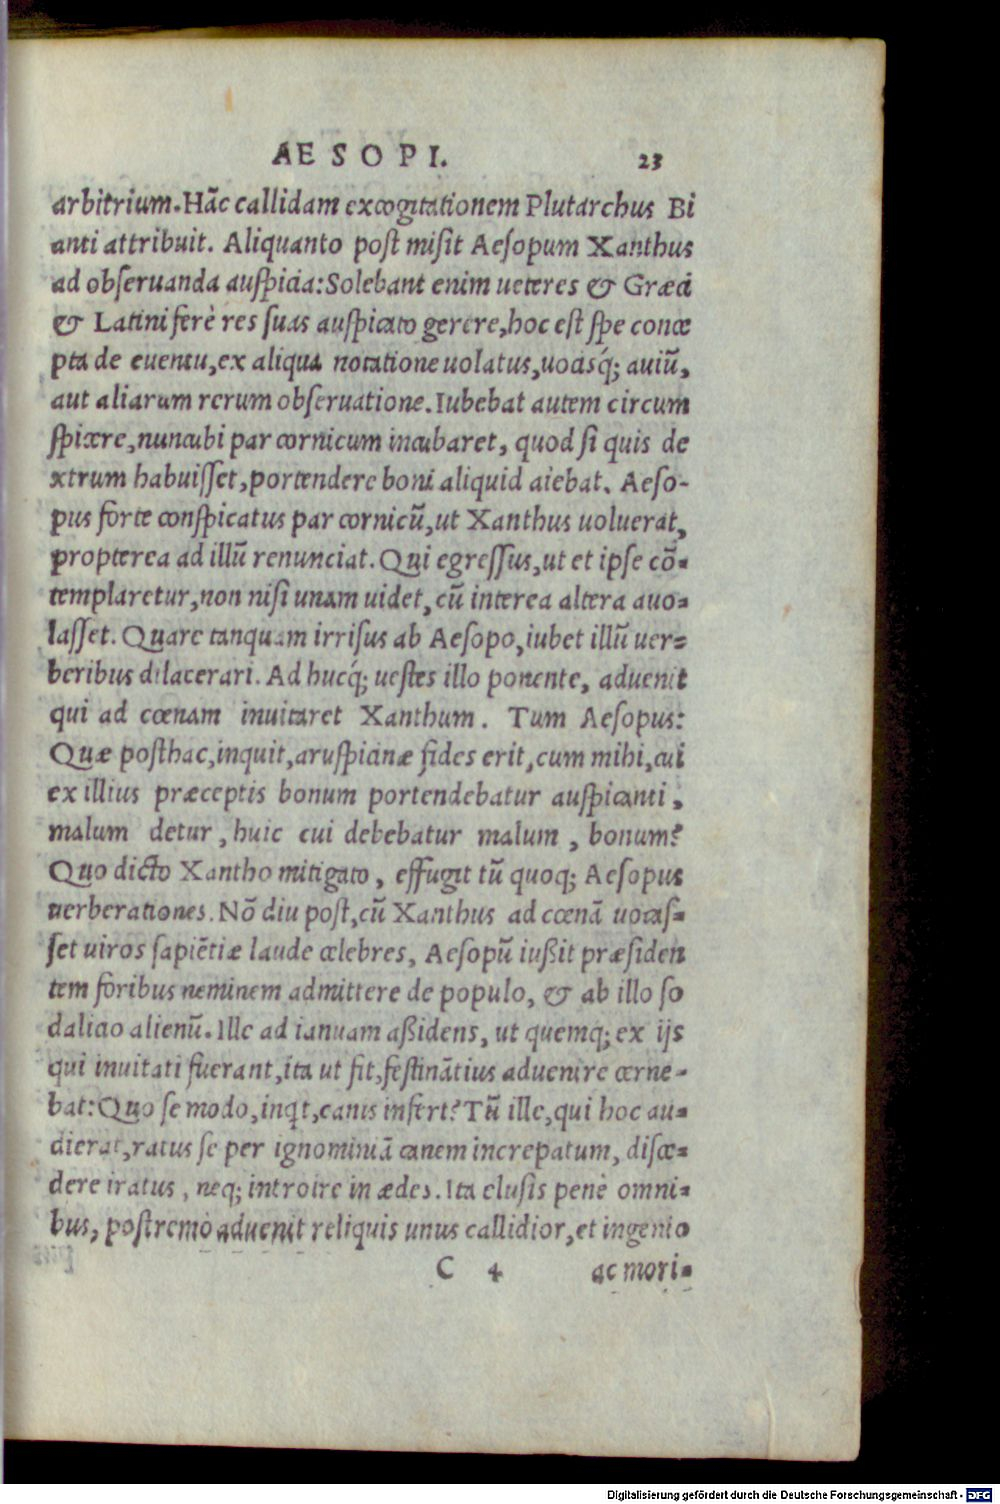 AESOPI. 23
arbitrium. Hãc callidam excogitationem Plutarchus Bi
anti attribuit. Aliquanto post misit Aesopum Xanthus
ad obseruanda auspicia: Solebant enim ueteres & Græci
& Latini ferè res suas auspicato gerere, hoc est spe conce
pta de euentu, ex aliqua notatione uolatus, uocisq́; auiũ,
aut aliarum rerum obseruatione. Iubebat autem circum
spicere, nuncubi par cornicum incubaret, quod si quis de
xtrum habuisset, portendere boni aliquid aiebat. Aeso-
pus forte conspicatus par cornicũ, ut Xanthus uoluerat,
propterea ad illũ renunciat. Qui egressus, ut et ipse cõ-
templaretur, non nisi unam uidet, cũ interea altera auo-
lasset. Quare tanquam irrisus ab Aesopo, iubet illũ uer-
beribus dilacerari. Ad hucq́; uestes illo ponente, aduenit
qui ad cœnam inuitaret Xanthum. Tum Aesopus:
Quæ posthac, inquit, aruspicinæ fides erit, cum mihi, cui
ex illius præceptis bonum portendebatur auspicanti,
malum detur, huic cui debebatur malum, bonum?
Quo dicto Xantho mitigato, effugit tũ quoq; Aesopus
uerberationes. Nõ diu post, cũ Xanthus ad cœnã uocas-
set uiros sapiẽtiæ laude celebres, Aesopũ iußit præsiden
tem foribus neminem admittere de populo, & ab illo so
dalicio alienũ. Ille ad ianuam aßidens, ut quemq; ex ijs
qui inuitati fuerant, ita ut fit, festinãtius aduenire cerne-
bat: Quo se modo, inqt, canis infert? Tũ ille, qui hoc au-
dierat, ratus se per ignominiã canem increpatum, disce-
dere iratus, neq; introire in ædes. Ita elusis penè omni-
bus, postremò aduenit reliquis unus callidior, et ingenio
C 4 ac mori-
Digitalisierung gefördert durch die Deutsche Forschungsgemeinschaft - DFG